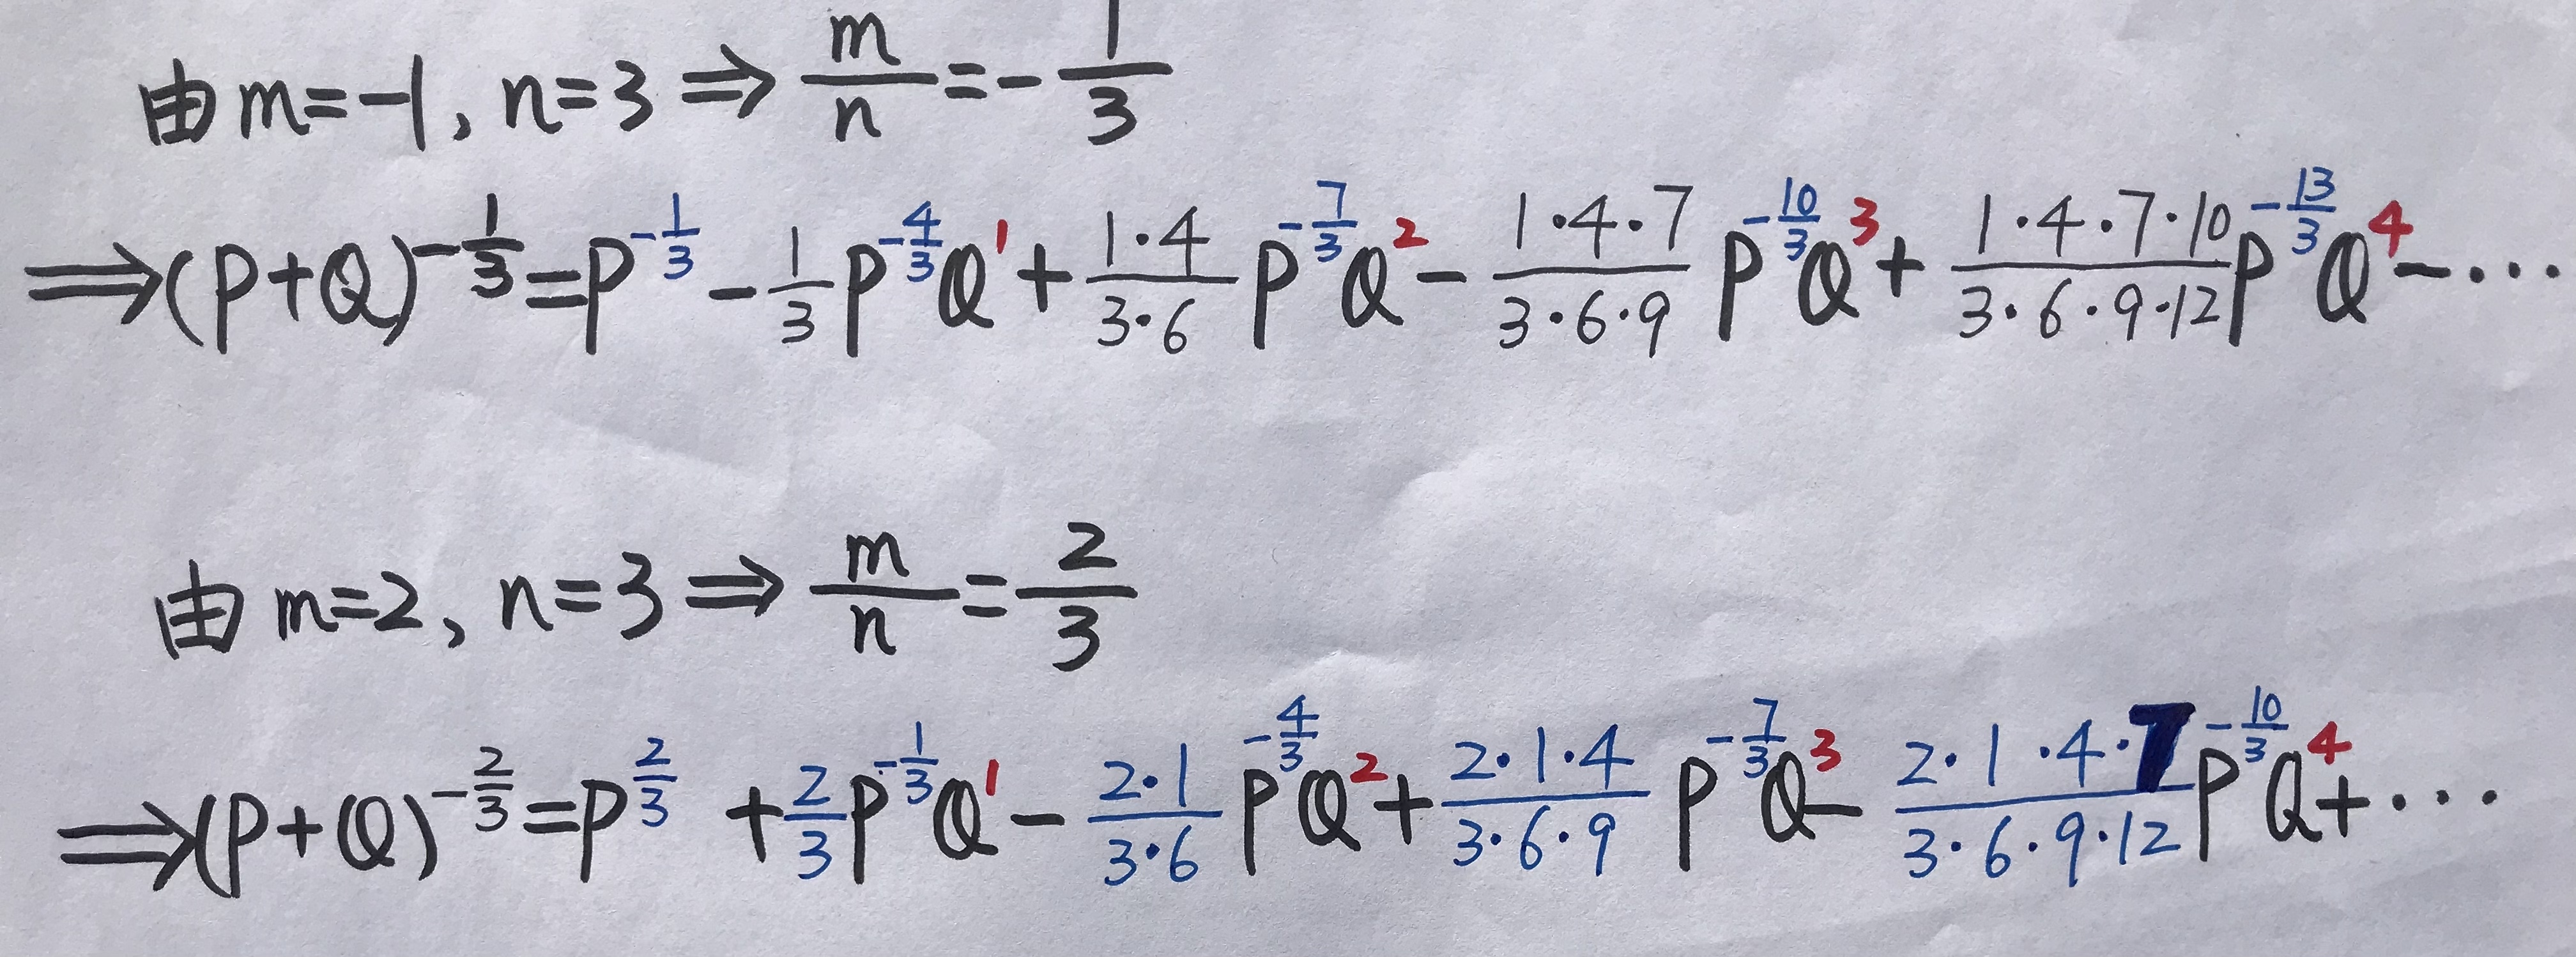 由 m=-1, n=3 ⇒ m/n = -1/3
⇒ (P+Q)^(-1/3) = P^(-1/3) - 1/3 P^(-4/3) Q^1 + (1·4)/(3·6) P^(-7/3) Q^2 - (1·4·7)/(3·6·9) P^(-10/3) Q^3 + (1·4·7·10)/(3·6·9·12) P^(-13/3) Q^4 - ···
由 m=2, n=3 ⇒ m/n = 2/3
⇒ (P+Q)^(-2/3) = P^(2/3) + 2/3 P^(-1/3) Q^1 - (2·1)/(3·6) P^(-4/3) Q^2 + (2·1·4)/(3·6·9) P^(-7/3) Q^3 - (2·1·4·7)/(3·6·9·12) P^(-10/3) Q^4 + ···